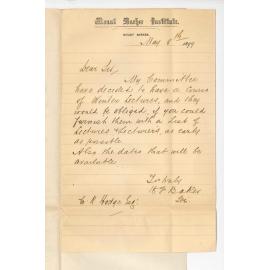 Mount Barker Institute.
MOUNT BARKER,
May 8th 1899
Dear Sir
My Committee
have decided to have a Course
of Winter Lectures, and they
would be obliged, if you could
furnish them with a List of
Lectures & Lecturers, as early
as possible
Also the dates that will be
available
Baker
Sec
C. R. Hodge Esq.